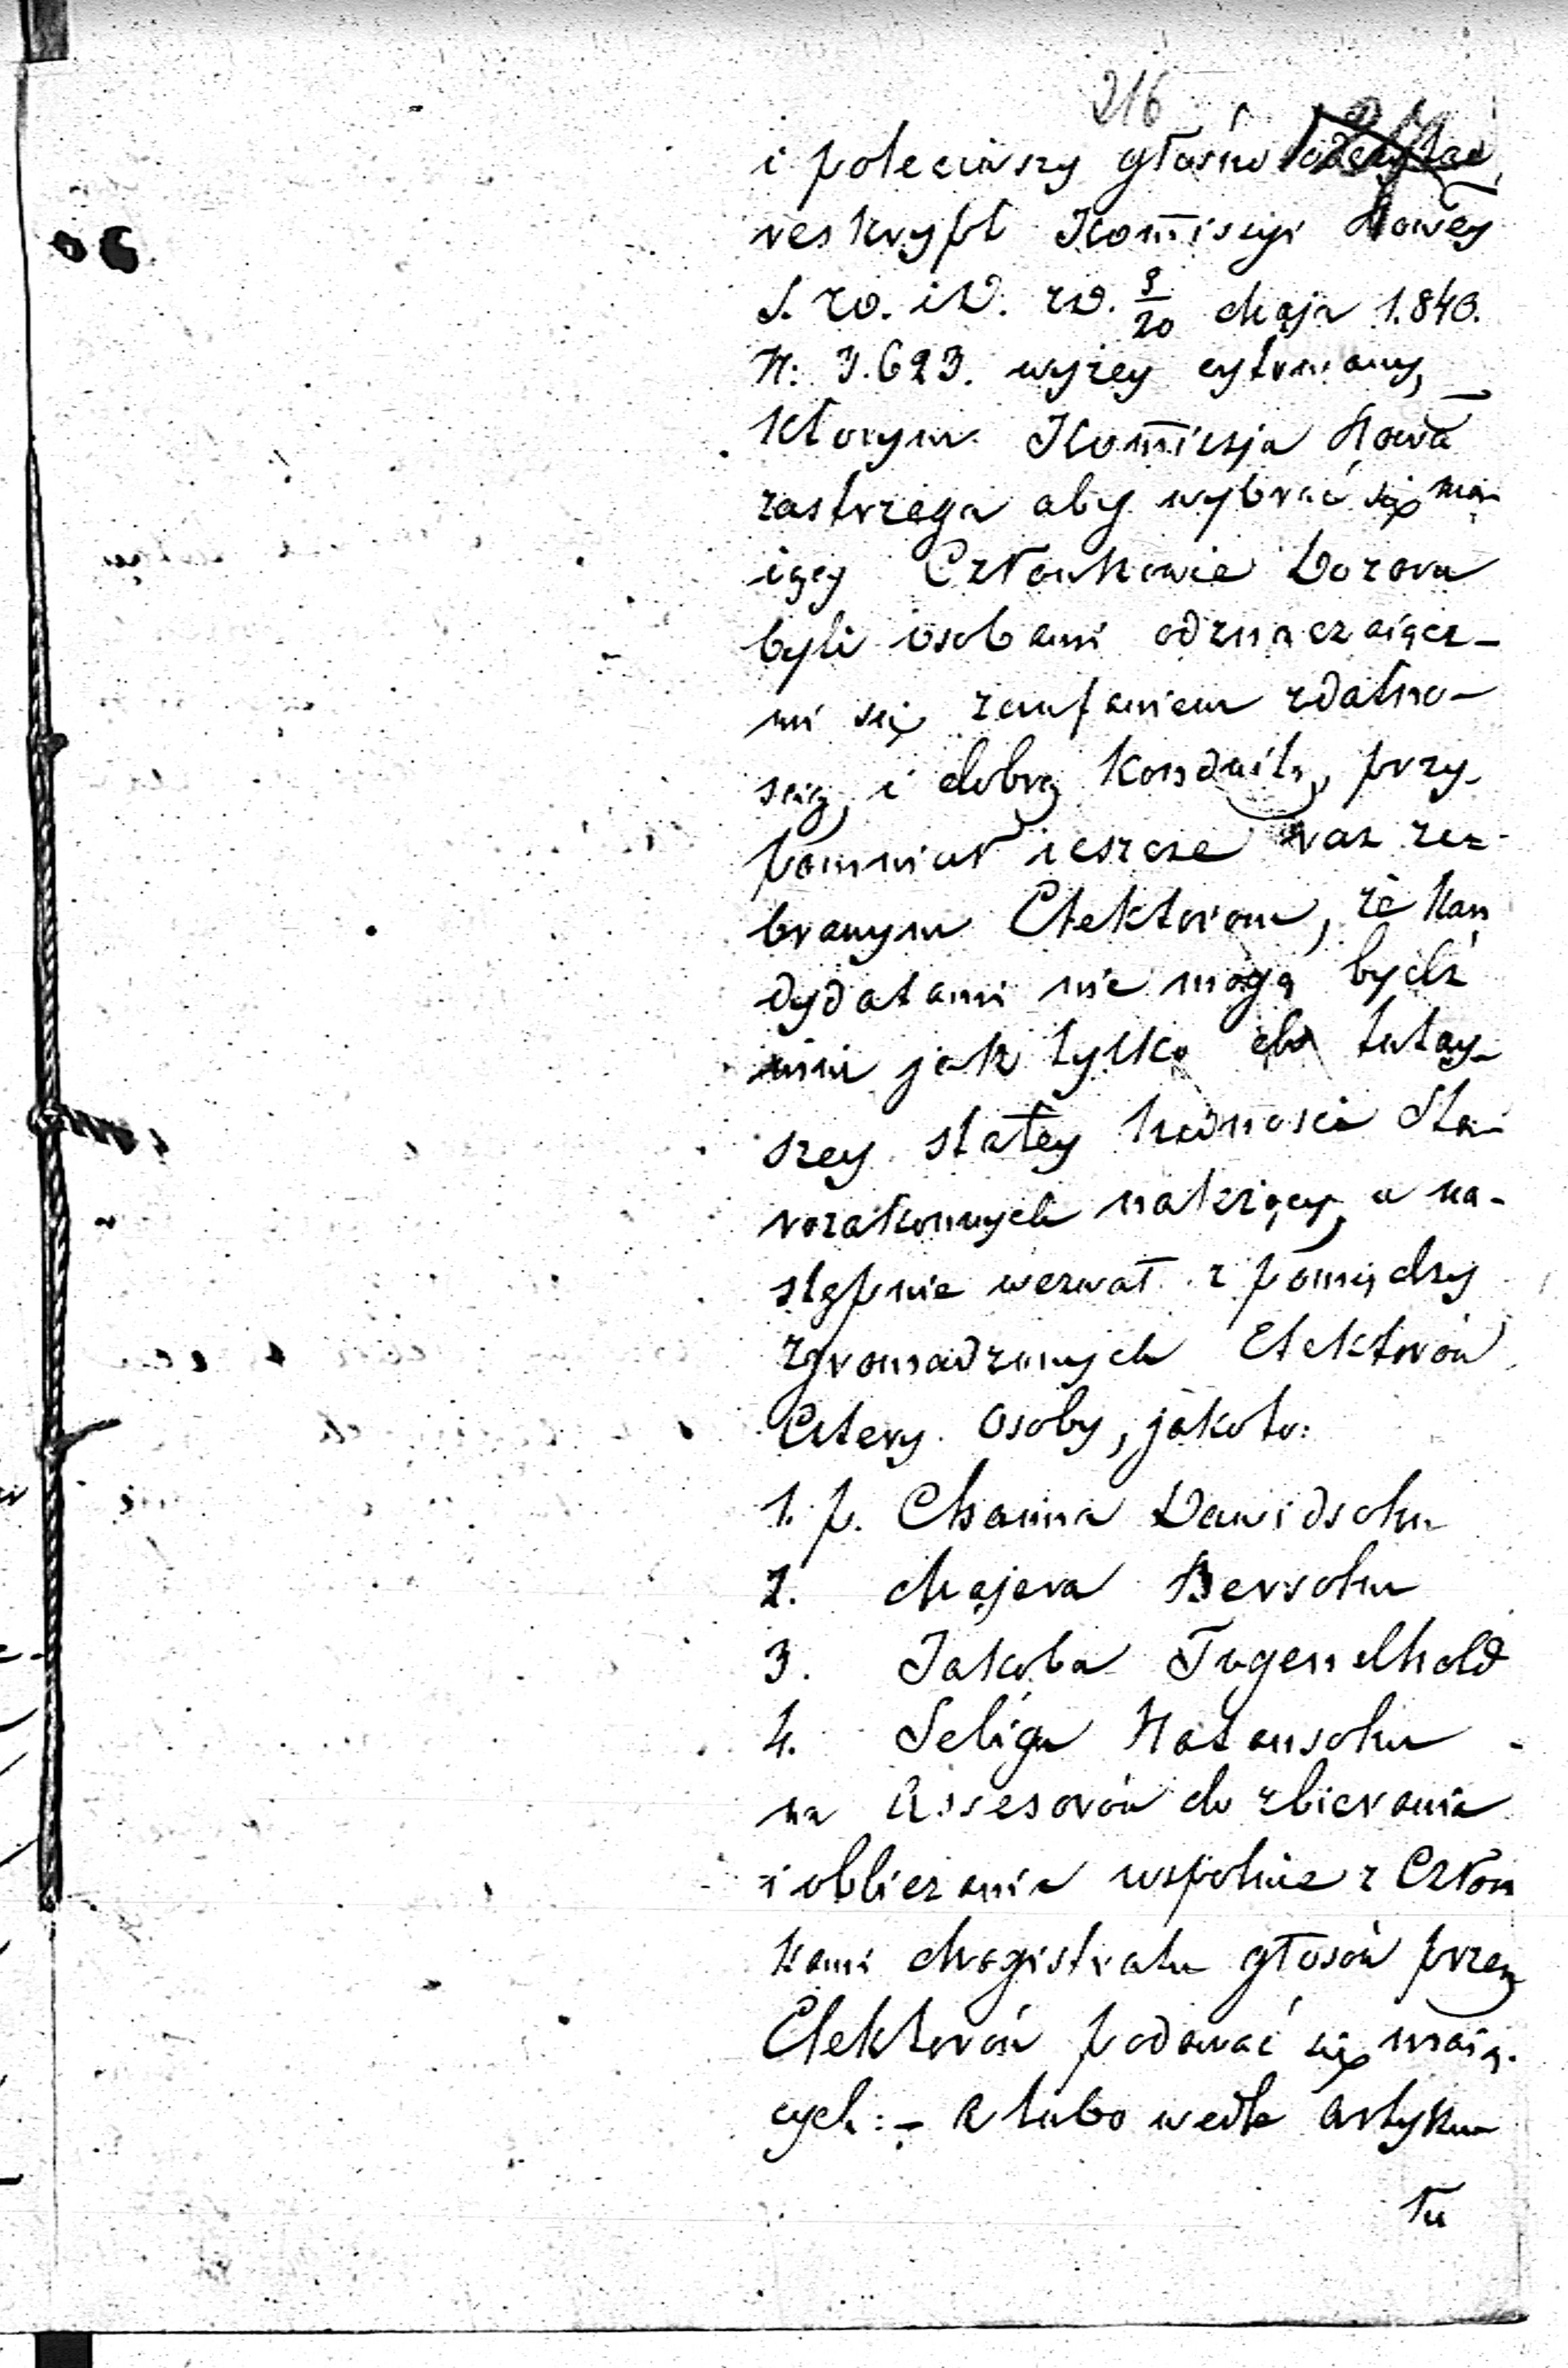 216
i poleciwszy głośno odczytać
reskrypt Kommissyi Rowey
S. W. i D. z d. 8/20 Maja 1.840.
N: 3.623. wyżey cytowany,
którym Kommissja Rowa
zastrzega aby wybrać się ma-
iący Członkowie Dozoru
byli osobami odznaczaiące-
mi się zaufaniem zdatno-
scią, i dobrą konduitą, przy-
pomniał ieszcze raz ze-
branym Elektorom, że kan
dydatami nie mogą bydź
inni jak tylko do tutey-
szey stałey ludności Sta-
rozakonnych należący, a na-
stępnie wezwał z pomiędzy
zgromadzonych Elektorów
Cztery osoby, jakoto:
1. p. Chaima Dawidsohn
2. Majera Bersohn
3. Jakoba Tugendhold
4. Seliga Natansohn
na Assesorów do zbierania
i obliczania wspólnie z Człon
kami Magistratu głosów przez
Elektorów podawać się maią-
cych: - A lubo wedle Artyku-
łu